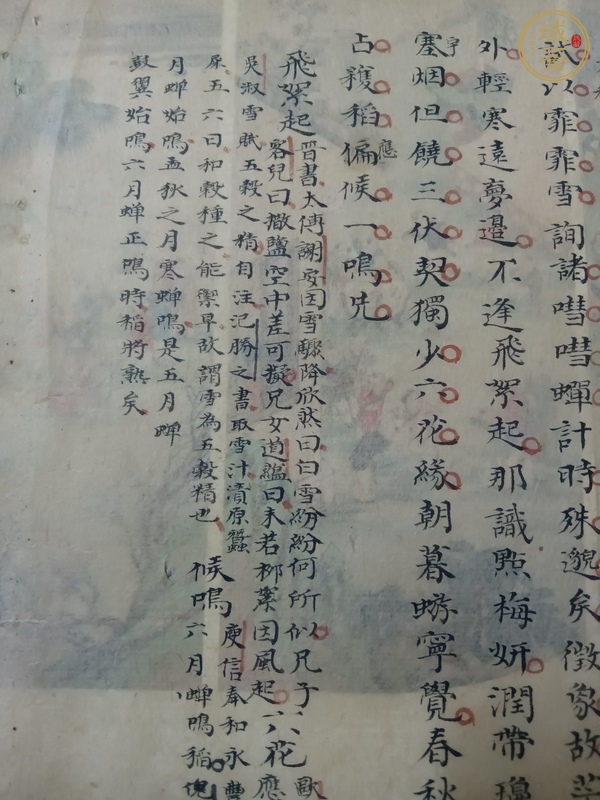 試以霏霏雪詢諸嘒嘒蟬計時殊邈矣徵象故
外輕寒遠夢邊不逢飛絮起那識點梅妍潤帶
塞烟但饒三伏契獨少六花緣朝暮蜉寧覺春秋
占穫稻偏候一鳴先
應
飛絮起
晉書太傅謝安因雪驟降欣然曰白雪紛紛何所似兄子
客兒曰撒鹽空中差可擬兄女道韞曰未若柳葉因風起
六花
吳淑雪賦五穀之精自注氾勝之書取雪汁漬原蠶
屎五六日和穀種之能禦旱故謂雪為五穀精也
候鳴
庾信奉和永豐
六月蟬鳴稻
月蟬始鳴孟秋之月寒蟬鳴是五月蟬
鼓翼始鳴六月蟬正鳴時稻將熟矣